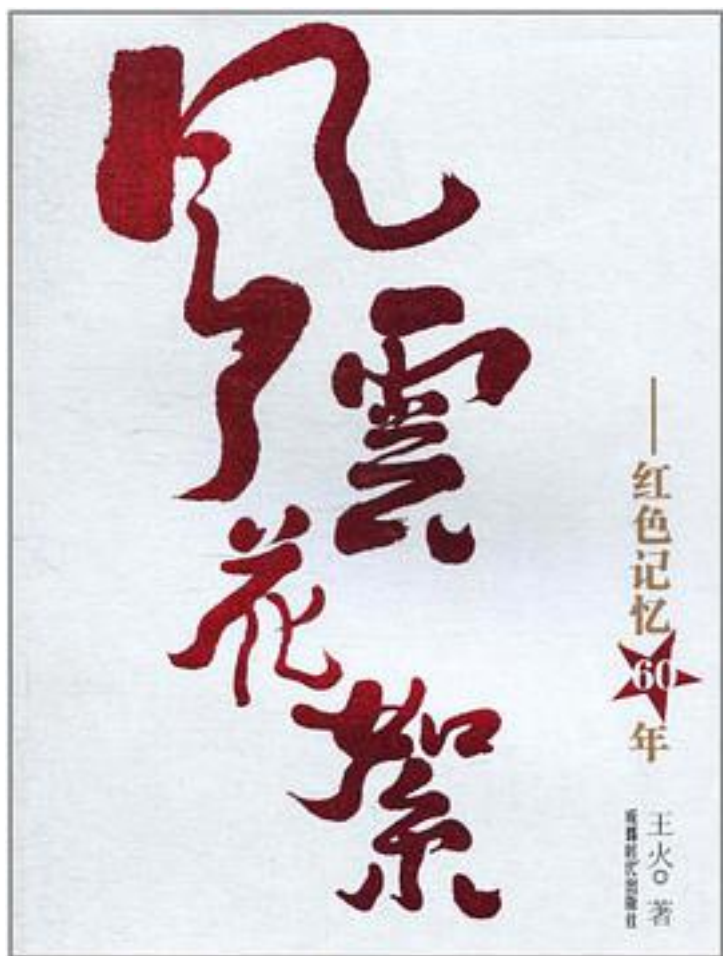 风雲花絮
——红色记忆60年
王火○著
成都时代出版社